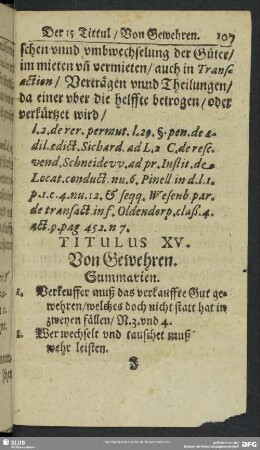 Der 15 Tittul / Von Gewehren. 107
schen vnnd vmbwechselung der Güter /
im mieten vñ vermieten / auch in Transe
action / Verträgen vnnd Theilungen /
da einer vber die helffte betrogen / oder
verkürtzet wird /
l. 2. de rer. permut. l. 29. §. pen. de æ-
dil. edict. Sichard. ad L. 2 C. de resc.
vend. Schneidevv. ad pr. Instit. de
Locat. conduct. nu. 6. Pinell in d. l. 1.
p. 1. c. 4. nu. 12. & seqq. Wesenb par.
de transact. in f. Oldendorp. claß. 4.
act. 9. pag 452. n 7.
TITULUS XV.
Von Gewehren.
Summarien.
1. Verkeuffer muß das verkauffte Gut ge-
wehren / welches doch nicht statt hat in
zweyen fällen / N. 3. vnd 4.
2. Wer wechselt vnd tauschet muß
wehr leisten.
J
SLUB
DFG